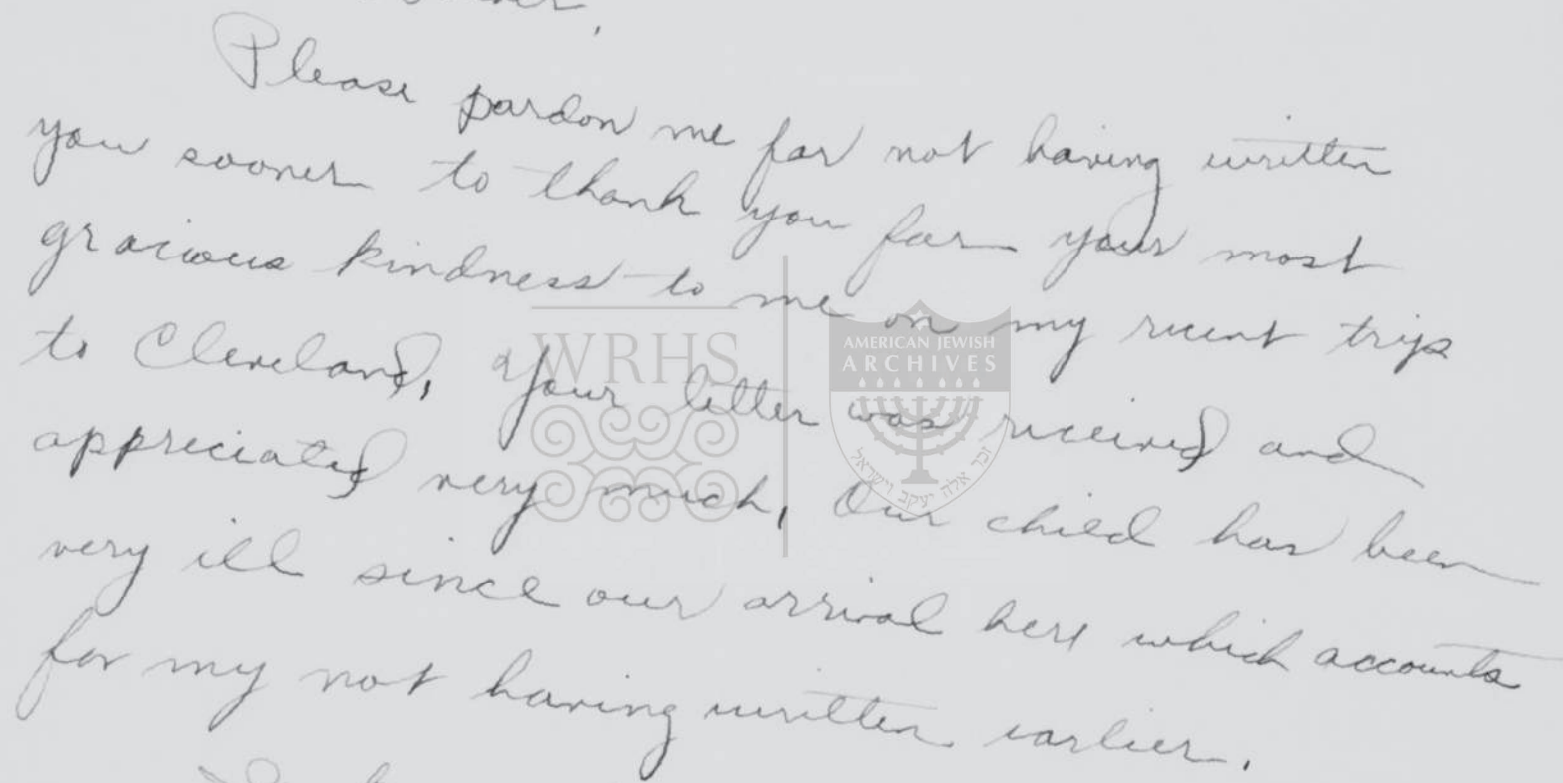 Please pardon me for not having written
you sooner to thank you for your most
gracious kindness to me on my recent trip
to Cleveland. Your letter was received and
appreciated very much. Our child has been
very ill since our arrival here which accounts
for my not having written earlier.
WRHS
AMERICAN JEWISH
ARCHIVES